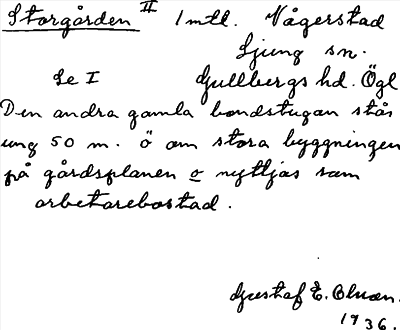 Storgården II 1 mtl. Vågerstad
Ljung sn.
Se I Gullbergs hd. Ögl
Den andra gamla bondstugan står
ung 50 m. ö om stora byggningen
på gårdsplanen o nyttjas som
arbetarebostad.
Gustaf E. Olsson.
1936.